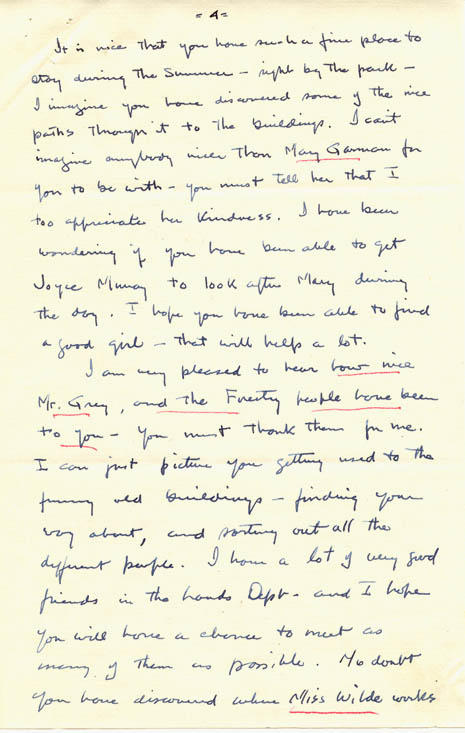 = 4 =
It is nice that you have such a fine place to
stay during the Summer – right by the park –
I imagine you have discovered some of the nice
paths through it to the buildings. I cant
imagine anybody nicer than Mary Garman for
you to be with – you must tell her that I
too appreciate her kindness. I have been
wondering if you have been able to get
Joyce Murray to look after Mary during
the day. I hope you have been able to find
a good girl – that will help a lot.
I am very pleased to hear how nice
Mr. Grey, and the Forestry people have been
to you – you must thank them for me.
I can just picture you getting used to the
funny old buildings – finding your
way about, and sorting out all the
different people. I have a lot of very good
friends in the Lands Dept – and I hope
you will have a chance to meet as
many of them as possible. No doubt
you have discovered where Miss Wilde works